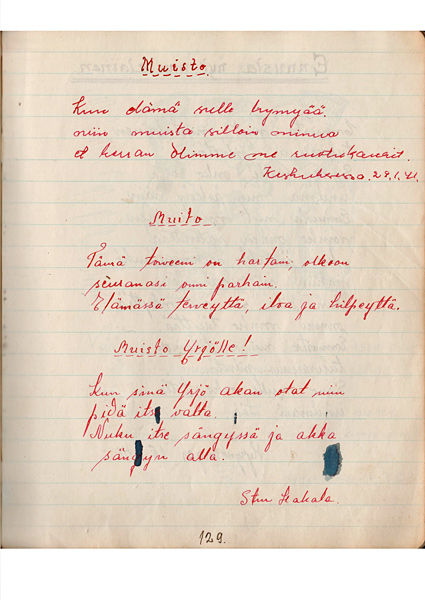 Muisto.
Kun elämä sulle hymyää.
niin muista silloin minua
et kerran olimme me ruotukaverit.
29.1.41.
Muito
Tämä toiveeni on hartain, olkoon
seuranasi onni parhain.
Elämässä terveyttä, iloa ja hilpeyttä.
Muisto Yrjölle!
Kun sinä Yrjö akan otat niin
pidä itse valta.
Nuku itse sängyssä ja akka
sängyn alla.
129.